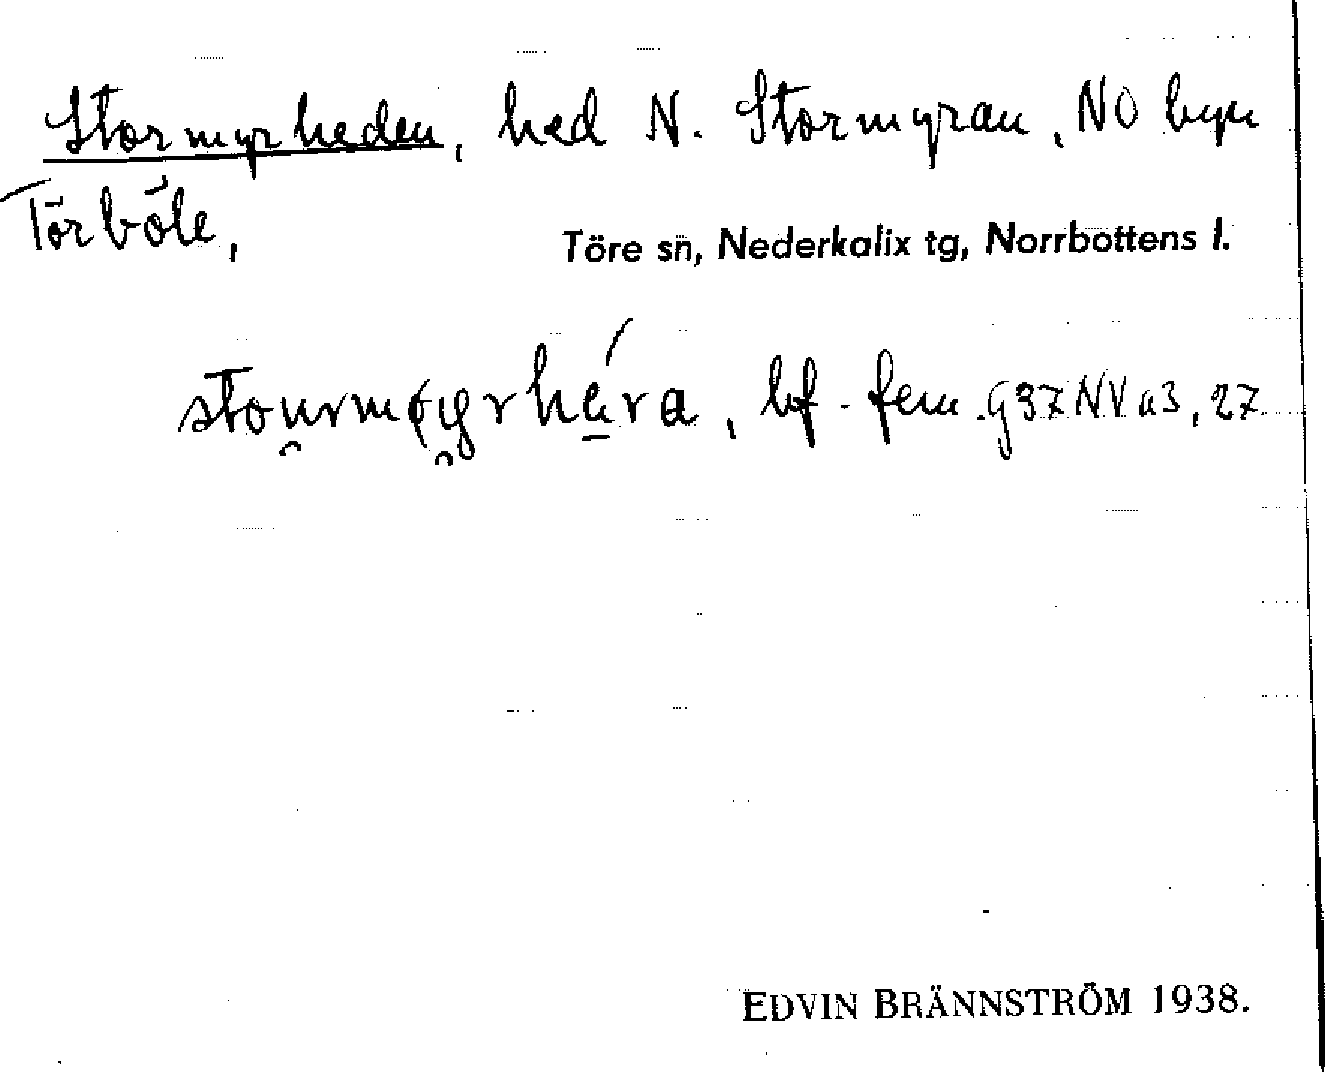 Stormyrheden, hed N. Stormyran, NO byn
Törböle,
Töre sn, Nederkalix tg, Norrbottens l.
bf. fem. G37NVa3,27
EDVIN BRÄNNSTRÖM 1938.